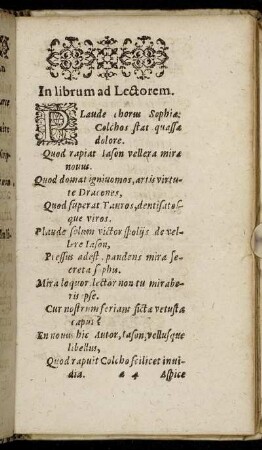 In librum ad Lectorem.
PLaude chorus Sophiæ
Colchos stat quassa
dolore.
Quod rapiat Iason vellera mira
nouus.
Quod domat igniuomos, artis virtu-
te Dracones,
Quod superat Tauros, dentisatos-
que viros.
Plaude solum victor spolijs de vel-
lere Iason,
Plessus adest, pandens mira se-
creta sophu.
Mira loquor, lector non tu mirabe-
ris ipse.
Cur nostrum feriant ficta vetusta
caput?
En nouus hic Autor, Iason, vellusque
libellus,
Quod rapuit Colcho scilicet inui-
dia. a 4 Aspice